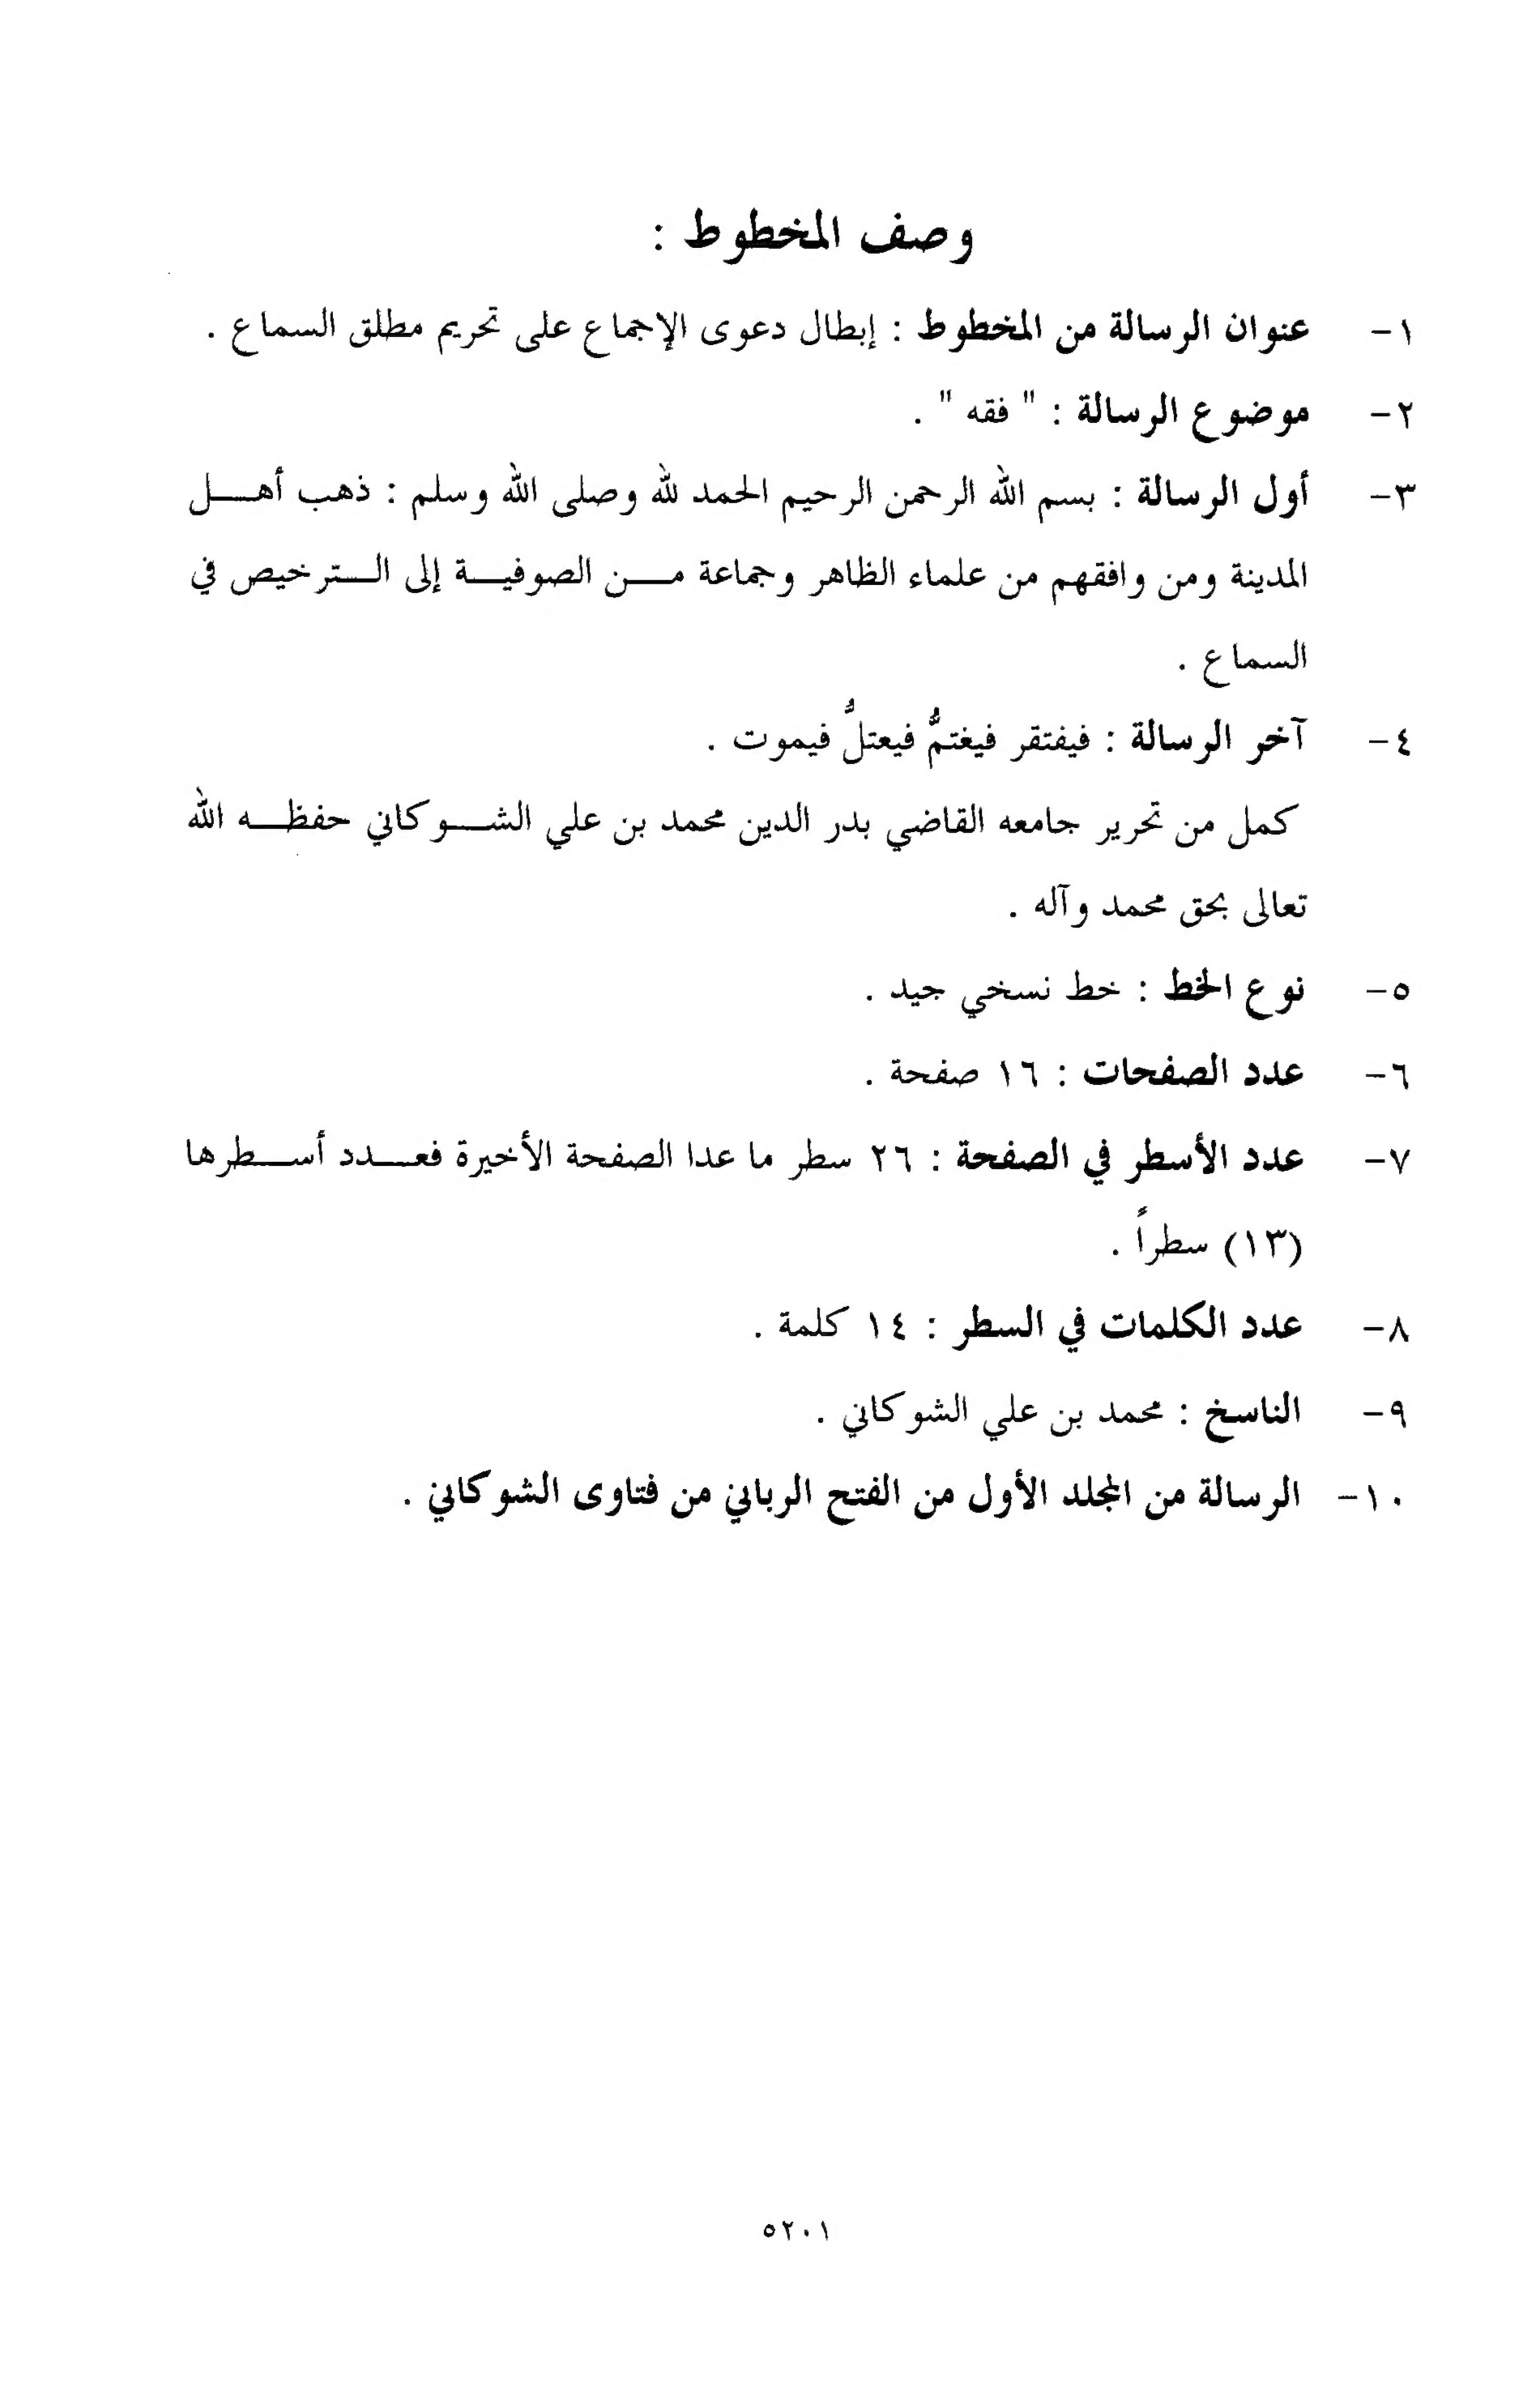 وصف المخطوط :
١- عنوان الرسالة من المخطوط : إبطال دعوى الإجماع على تحريم مطلق السماع .
٢- موضوع الرسالة : " فقه " .
٣- أول الرسالة : بسم الله الرحمن الرحيم الحمد لله وصلى الله وسلم : ذهب أهل
المدينة ومن وافقهم من علماء الظاهر وجماعة من الصوفية إلى الترخيص في
السماع .
٤- آخر الرسالة : فيفتقر فيغتمُّ فيعتلُّ فيموت .
كمل من تحرير جامعه القاضي بدر الدين محمد بن علي الشوكاني حفظه الله
تعالى بحق محمد وآله .
٥- نوع الخط : خط نسخي جيد .
٦- عدد الصفحات : ١٦ صفحة .
٧- عدد الأسطر في الصفحة : ٢٦ سطر ما عدا الصفحة الأخيرة فعدد أسطرها
(١٣) سطراً .
٨- عدد الكلمات في السطر : ١٤ كلمة .
٩- الناسخ : محمد بن علي الشوكاني .
١٠- الرسالة من المجلد الأول من الفتح الرباني من فتاوى الشوكاني .
٥٢٠١